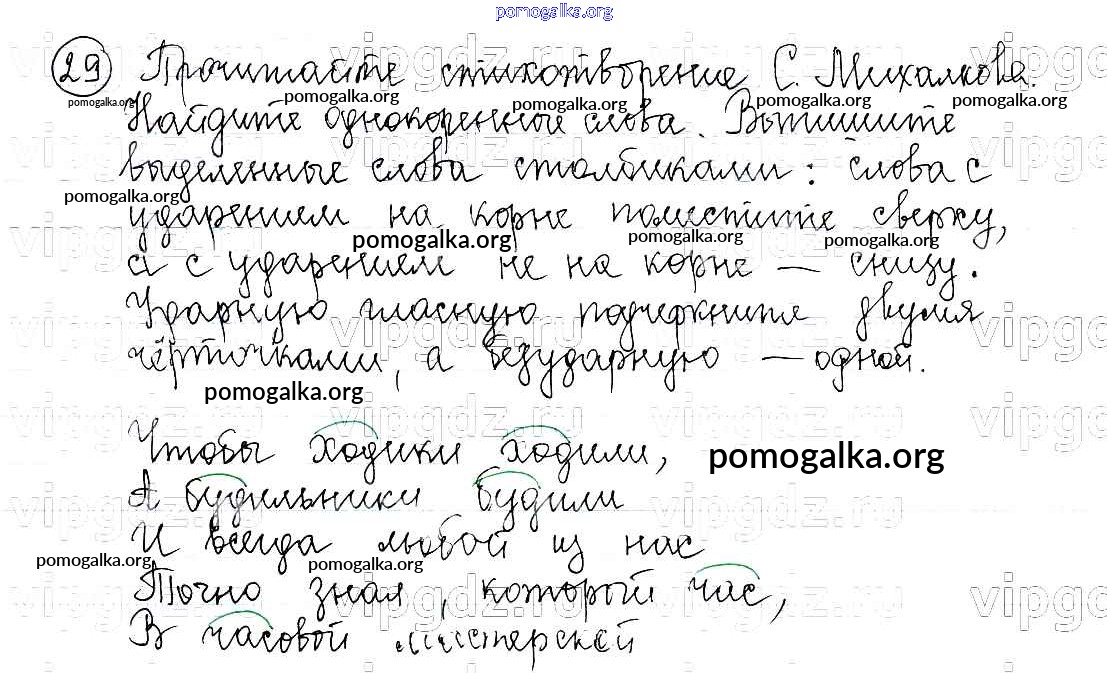 pomogalka.org
29 Прочитайте стихотворение С. Михалкова.
pomogalka.org pomogalka.org pomogalka.org pomogalka.org
Найдите однокоренные слова. Выпишите
vipgdz.ru vipgdz.ru vipgdz.ru vipgdz
выделенные слова столбиками: слова с
pomogalka.org
ударением на корне поместите сверху,
pomogalka.org pomogalka.org pomogalka.org
а с ударением не на корне — снизу.
Ударную гласную подчеркните двумя
vipgdz.ru vipgdz.ru vipgdz.ru vipgdz
чёрточками, а безударную — одной.
pomogalka.org
vipgdz.ru vipgdz.ru vipgdz.ru vipgdz
Чтобы ходики ходили,
pomogalka.org
А будильники будили
vipgdz.ru vipgdz.ru vipgdz.ru vipgdz
И всегда любой из нас
pomogalka.org pomogalka.org
Точно знал, который час,
vipgdz.ru vipgdz.ru vipgdz.ru vipgdz
В часовой мастерской